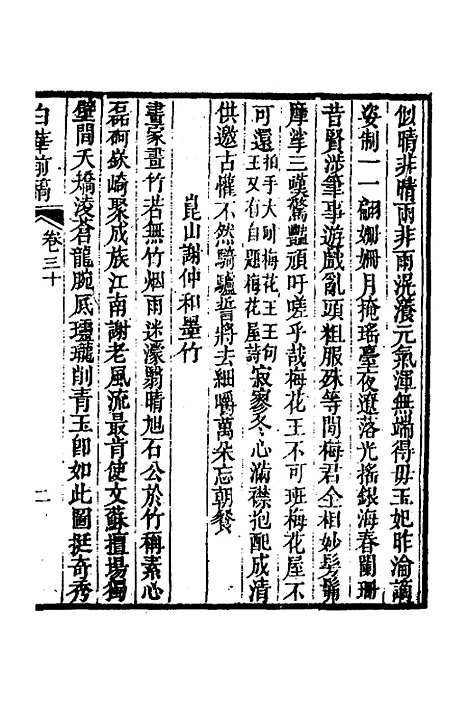 似晴非晴雨非雨滉瀁元氣渾無端得毋玉妃昨淪謫
姿制一一翩姍姍月掩瑤臺夜遼落光搖銀海春闌珊
昔賢涉筆事遊戲亂頭粗服殊等閒梅君全相妙髣髴
摩挲三嘆驚豔頑吁嗟乎哉梅花王不可班梅花屋不
可還拍手大叫梅花王王句王又有自題梅花屋詩寂寥冬心滿襟抱配成清
供邀古懽不然騎驢誓將去細嚼萬朵忘朝餐
崑山謝仲和墨竹
畫家畫竹若無竹烟雨迷濛翳晴旭石公於竹稱素心
磊砢嶔崎聚成族江南謝老風流最肯使文蘇擅場獨
壁間夭矯淩蒼龍腕底瓏瓏削青玉卽如此圖挺奇秀
白華前稿
卷三十
二